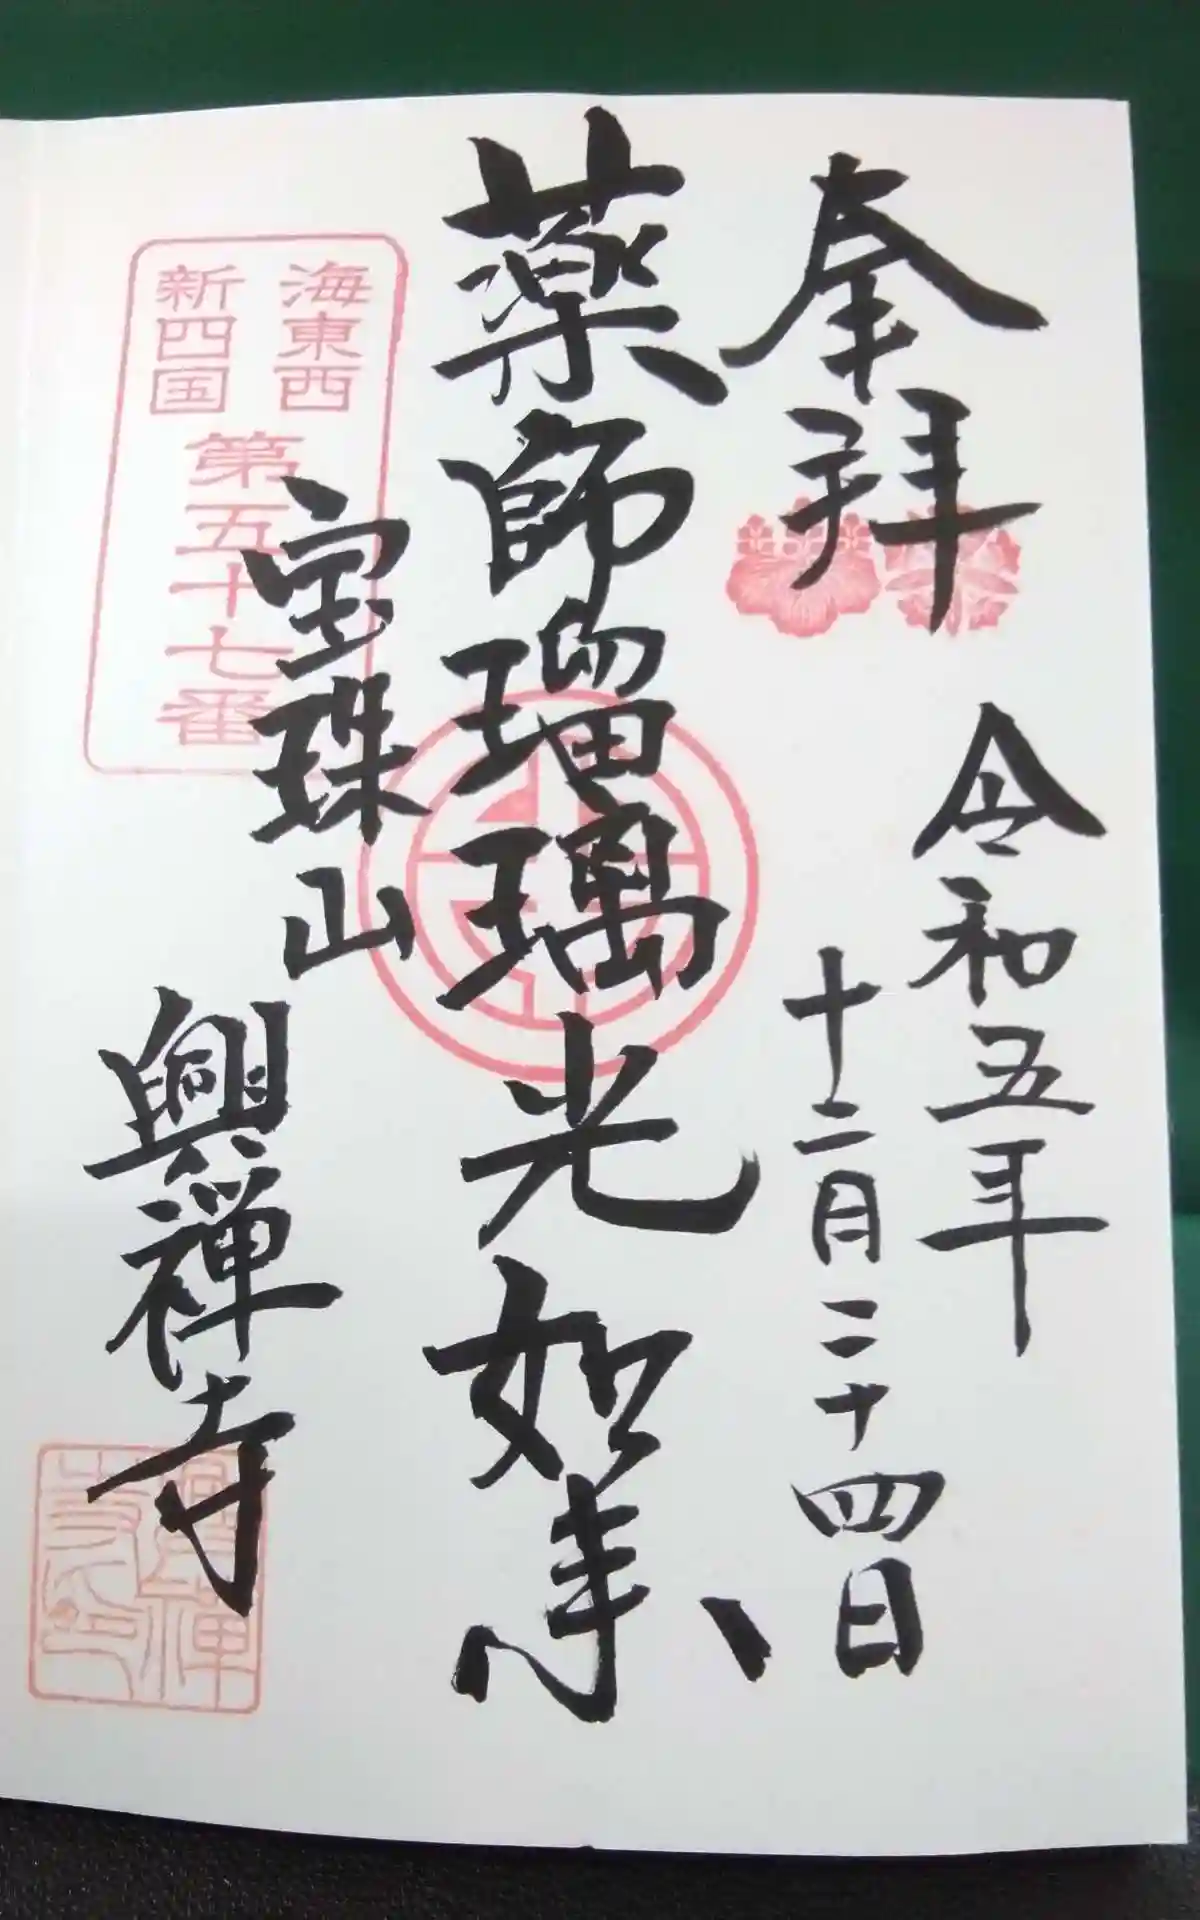 奉拝
令和五年
十二月二十四日
薬師瑠璃光如来
宝珠山
興禅寺
海東西
新四国
第五十七番